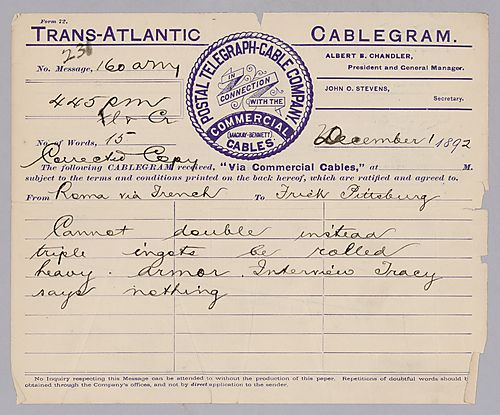 Form 72.
TRANS-ATLANTIC CABLEGRAM.
23
ALBERT B. CHANDLER,
President and General Manager.
JOHN O. STEVENS,
Secretary.
POSTAL TELEGRAPH-CABLE COMPANY
IN
CONNECTION
WITH THE
COMMERCIAL
(MACKAY-BENNETT)
CABLES
No. Message, 160 amy
445 pm
No. of Words, 15
December 1 1892
Corrected Copy
The following CABLEGRAM received, "Via Commercial Cables," at M.
subject to the terms and conditions printed on the back hereof, which are ratified and agreed to.
From Roma via French To Frick Pittsburg
Cannot double instead
triple ingots be rolled
heavy. armor. Interview Tracy
says nothing
No Inquiry respecting this Message can be attended to without the production of this paper. Repetitions of doubtful words should
obtained through the Company's offices, and not by direct application to the sender.